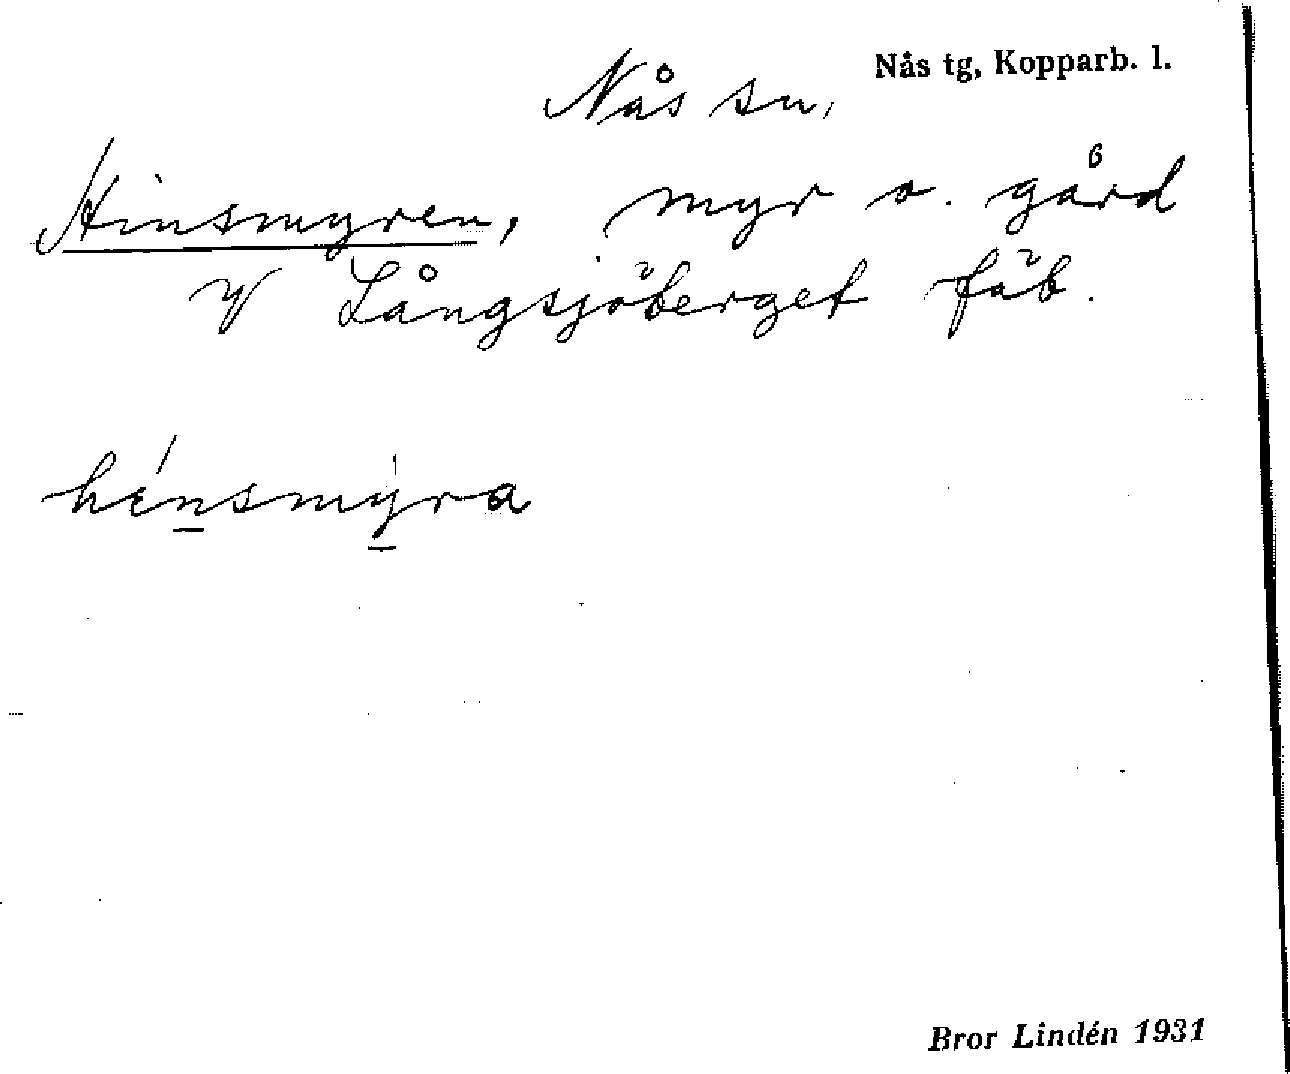 Nås tg, Kopparb. l.
Nås sn,
Hinsmyren, myr o. gård
V Långsjöberget fäb.
hénsmýra
Bror Lindén 1931